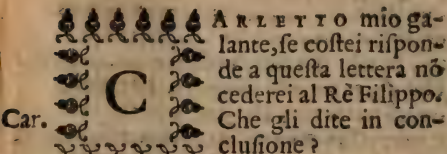 CARLETTO mio ga-
lante, ſe coſtei riſpon-
de a queſta lettera nõ
cederei al Rè Filippo.
Car. Che gli dite in con-
cluſione?